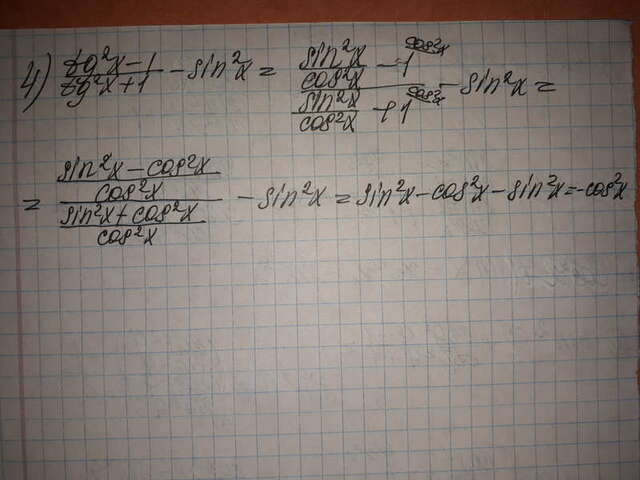 4) (tg²x-1)/(tg²x+1) - sin²x = (sin²x/cos²x - 1^cos²x)/(sin²x/cos²x + 1^cos²x) - sin²x =
= ((sin²x-cos²x)/cos²x)/((sin²x+cos²x)/cos²x) - sin²x = sin²x-cos²x-sin²x=-cos²x